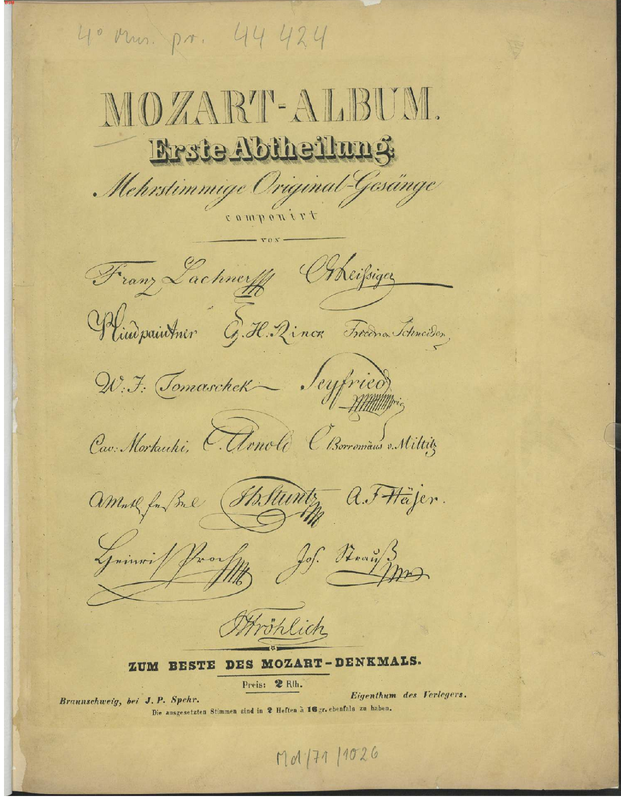 4° Mus. pr. 44 424
MOZART-ALBUM.
Erste Abtheilung:
Mehrstimmige Original-Gesänge
componirt
von
Franz Lachner CGReißiger
PLindpaintner C. H. Rinck Friedrich Schneider
W: J: Tomaschek Seyfried
Cav: Morlacchi, C. Arnold C Borromäus v. Miltitz
AMethfeßel JHStuntz A. F Häser.
Heinrich Proch Joh. Strauß
JFröhlich
ZUM BESTE DES MOZART-DENKMALS.
Preis: 2 Rth.
Braunschweig, bei J. P. Spehr. Eigenthum des Verlegers.
Die ausgesetzten Stimmen sind in 2 Heften à 16 gr. ebenfals zu haben.
Md/71/1026